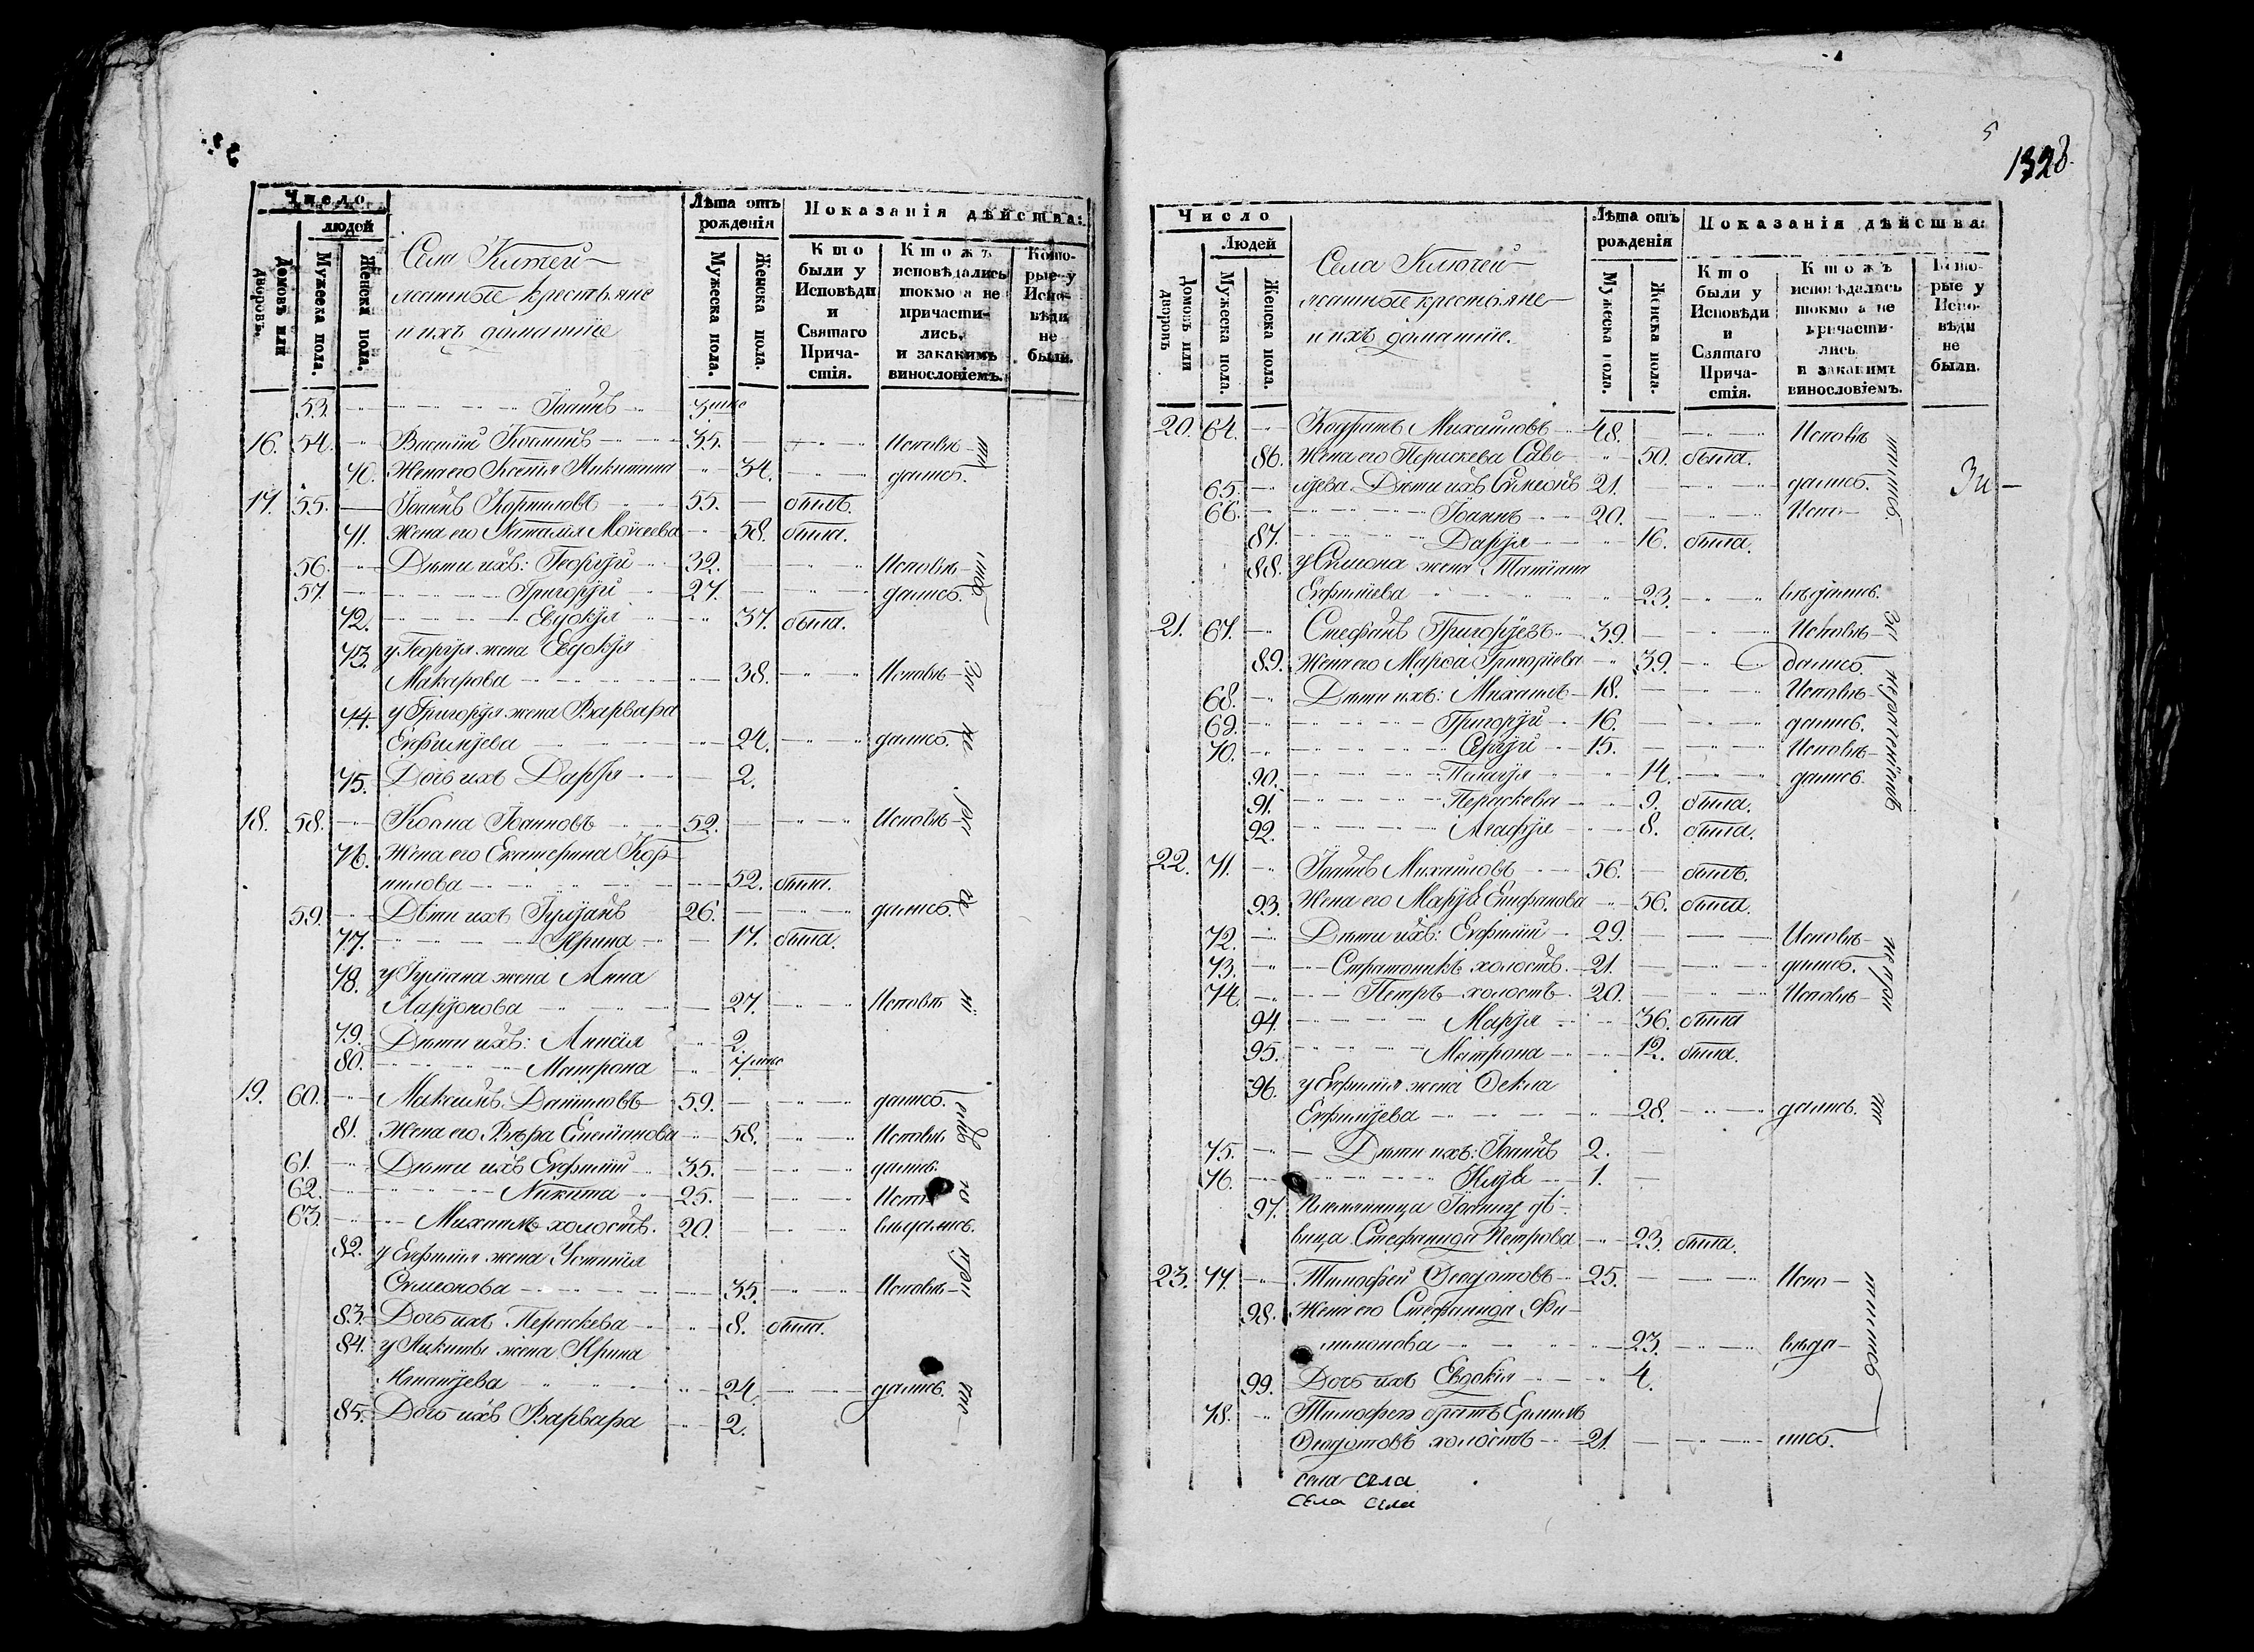 Число
людей
Домовъ или дворовъ.
Мужеска пола.
Женска пола.
Села Ключей
ясашные крестьяне
и ихъ домашніе
Лѣта отъ рожденія
Мужеска пола.
Женска пола.
Показанія дѣйства:
Кто были у Исповѣди и Святаго Причастія.
Ктожъ исповѣдались токмо а не причастились. и закакимъ винословіемъ.
Которые у Исповѣди не были.
53. Іоаннъ 3
16. 54. Василій Косминъ 35. Исповѣ-
70. Жена его Ксенія Никитина 34. дались.
17. 55. Іоаннъ Корниловъ 55. былъ.
71. Жена его Наталія Моѵсеева 58. была.
56. Дѣти ихъ: Георгій 32. Исповѣ-
57. Григорій 27. дались.
72. Евдокія 37. была.
73. у Георгія жена Евдокія
Макарова 38. Исповѣ-
74. у Григорія жена Варвара
Евфиміева 24. дались.
75. Дочь ихъ Дарія 2.
18. 58. Козма Іоанновъ 52. Исповѣ-
76. Жена его Екатерина Кор-
нилова 52. была.
59. Дѣти ихъ Іуліанъ 26. дались.
77. Ирина 17. была.
78. у Іуліана жена Анна
Ларіонова 27. Исповѣ
79. Дѣти ихъ: Анисія 2.
80. Матрона 7
19. 60. Максимъ Даниловъ 59. дались.
81. Жена его Вѣра 58. Исповѣ
61. Дѣти ихъ Евфимій 35. дались.
62. Никита 25. Испо
63. Михаилъ холостъ. 20. вѣдались.
82. у Евфимія жена Устинія
Симеонова 35. Исповѣ-
83. Дочь ихъ Перасkева 8. была.
84. у Никиты жена Ирина
Игнатіева 24. дались.
85. Дочь ихъ Варвара 2.
5
1328
Число
Людей
Домовъ или дворовъ
Мужеска пола
Женска пола.
Села Ключей
ясашные крестьяне
и ихъ домашніе.
Лѣта отъ рожденія
Мужеска пола.
Женска пола.
Показанія дѣйства:
Кто были у Исповѣди и Святаго Причастія.
Ктожъ исповѣдались токмо а не причастились и закакимъ винословіемъ.
Которые у Исповѣди не были.
20. 64. Кодратъ Михаиловъ 48. Исповѣ
86. Жена его Перасkева Саве- 50. была.
65. лѵева. Дѣти ихъ Симеонъ 21. дались.
66. Іоаннъ 20. Испо-
87. Дарія 16. была.
88. у Симеона жена Татіана
Евфиміева 23. вѣдались.
21. 67. Стефанъ Григоріевъ 39. Исповѣ-
89. Жена его Марѳа Григоріева 39. дались
68. Дѣти ихъ: Михаилъ 18. Исповѣ-
69. Григорій 16. дались.
70. Сергій 15. Исповѣ-
90. Пелагія 14. дались.
91. Перасkева 9. была.
92. Агафія 8. была.
22. 71. Іоаннъ Михаиловъ 56. былъ.
93. Жена его Марія Епифанова 56. была.
72. Дѣти ихъ: Евфимій 29. Исповѣ-
73. Стратоникъ холостъ. 21. дались.
74. Петръ холостъ 20. Исповѣ-
94. Марія 36. была
95. Матрона 12. была.
96. у Евфимія жена Ѳекла
Евфиміева 28. дались.
75. Дѣти ихъ: Іоаннъ 2.
76. Илія 1.
97. Племянница Іоанну дѣ-
вица Стефанида Петрова 23. была.
23. 77. Тимофей Ѳедотовъ 25. Испо-
98. Жена его Стефанида Фи-
лимонова 23. вѣда-
99. Дочь ихъ Евдокія 4.
78. Тимофея братъ Ермилъ
Ѳедотовъ холостъ 21. лись.
села села
села села